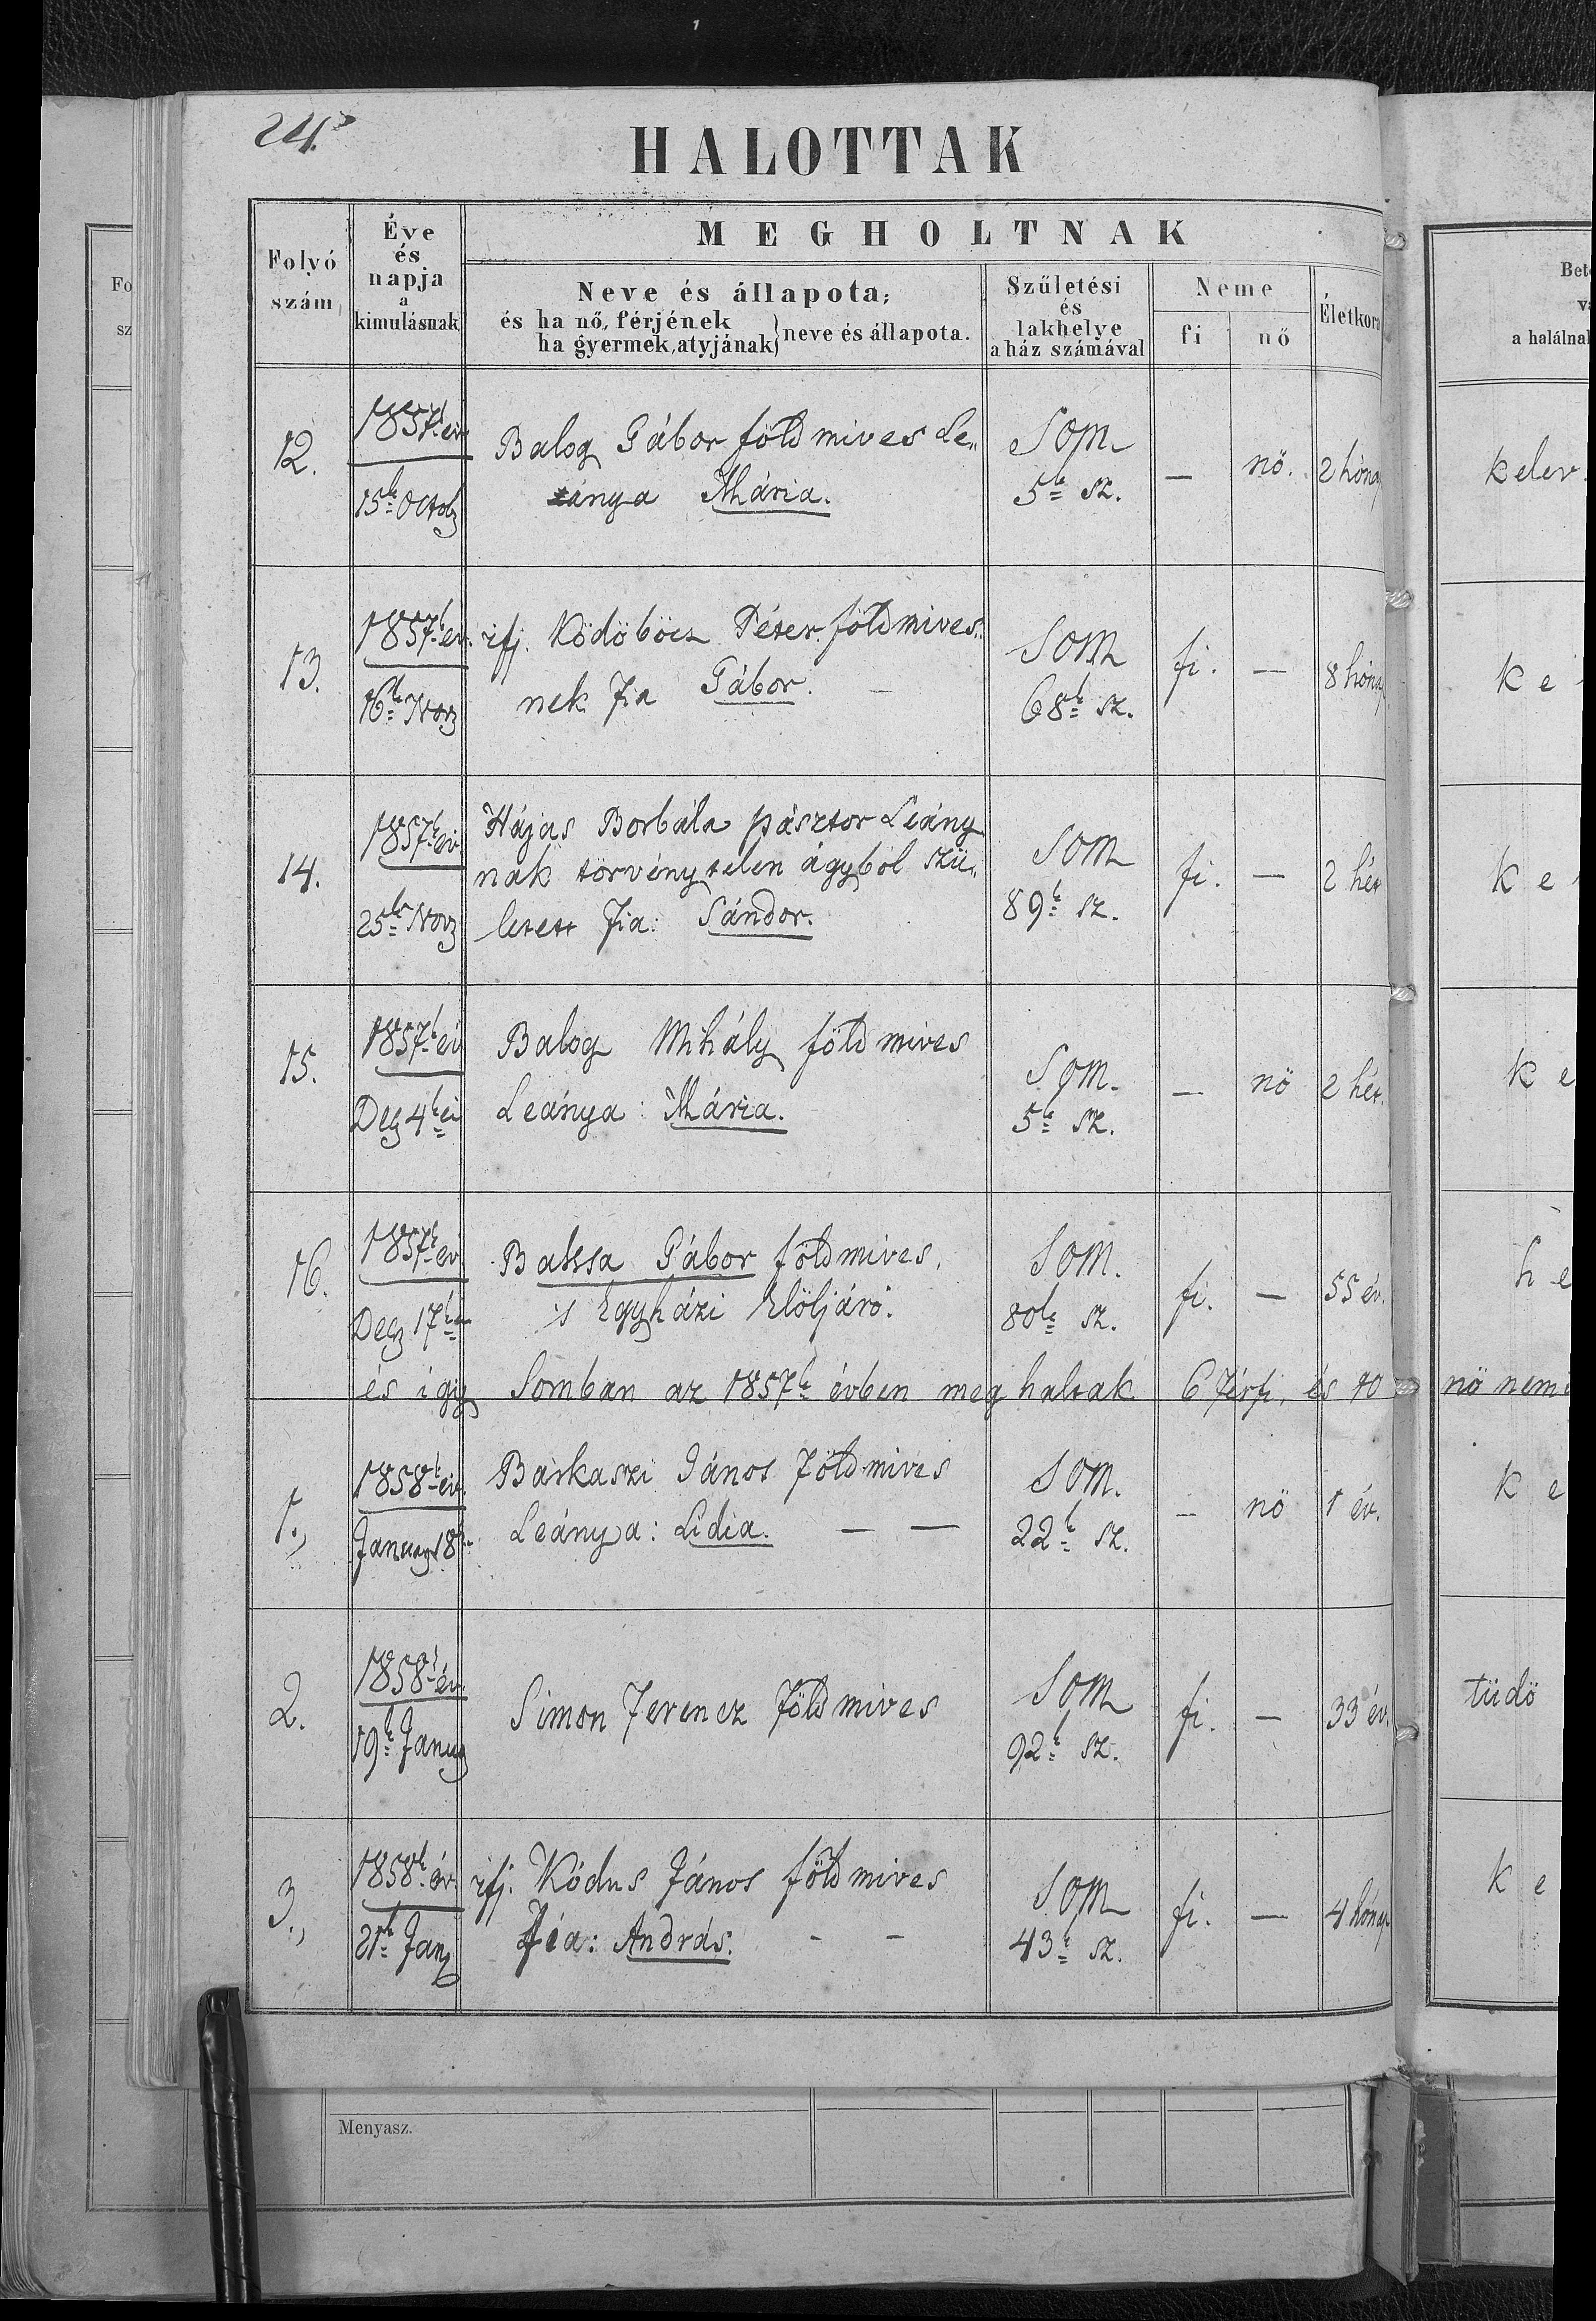 HALOTTAK
Folyó szám
Éve és napja a kimulásnak
MEGHOLTNAK
Neve és állapota;
és ha nő, férjének
ha gyermek, atyjának } neve és állapota.
Születési és lakhelye a ház számával
Neme
fi
nő
Életkora
12.
1857k év
15k Octob
Balog Gábor földmives Le„
ánya Mária.
Som
5k sz.
—
nö.
2 hónap
kelev
13.
1857k év.
16k Nov
ifj. Ködöböcz Péter földmives„
nek fia Gábor. —
Som
68k sz.
fi.
—
8 hónap
ke
14.
1857k év
25k Nov
Hájas Borbála pásztor Leány
nak törvénytelen ágyból szü„
letett fia: Sándor.
Som
89k sz.
fi.
—
2 hét
ke
15.
1857k év
Dec 4k
Balog Mihály földmives
Leánya: Mária.
Som.
5k sz.
—
nö
2 hét.
ke
16.
1857k év
Dec 17k
Balssa Gábor földmives,
s Egyházi Elöljáró.
Som.
80k sz.
fi.
—
55 év.
he
és igy Somban az 1857k évben meghaltak 6 férfi, és 10 nö nem
1.,
1858k év.
Januar 18k
Barkaszi János földmives
Leánya: Lidia. — —
Som.
22k sz.
—
nö
1 év.
ke
2.
1858k év.
19k Januar
Simon Ferencz földmives
Som
92k sz.
fi.
—
33 év.
tüdö
3.,
1858k év.
21k Jan
ifj. Kódus János földmives
fia: András. - -
Som
43k sz.
fi.
—
4 hónap
ke
Menyasz.
Fo
sz
Bet
v
a halálna